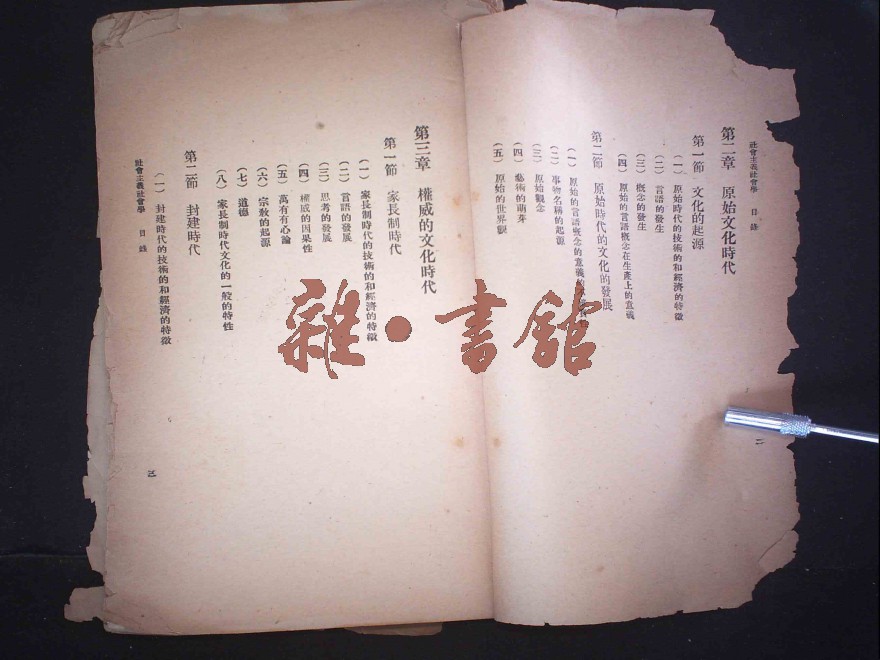 社會主義社會學 目錄
第二章 原始文化時代
第一節 文化的起源
(一) 原始時代的技術的和經濟的特徵
(二) 言語的發生
(三) 概念的發生
(四) 原始的言語概念在生產上的意義
第二節 原始時代的文化的發展
(一) 原始的言語概念的意義的
(二) 事物名稱的起源
(三) 原始觀念
(四) 藝術的萌芽
(五) 原始的世界觀
二
第三章 權威的文化時代
第一節 家長制時代
(一) 家長制時代的技術的和經濟的特徵
(二) 言語的發展
(三) 思考的發展
(四) 權威的因果性
(五) 萬有有心論
(六) 宗教的起源
(七) 道德
(八) 家長制時代文化的一般的特性
第二節 封建時代
(一) 封建時代的技術的和經濟的特徵
社會主義社會學 目錄
三
雜•書館